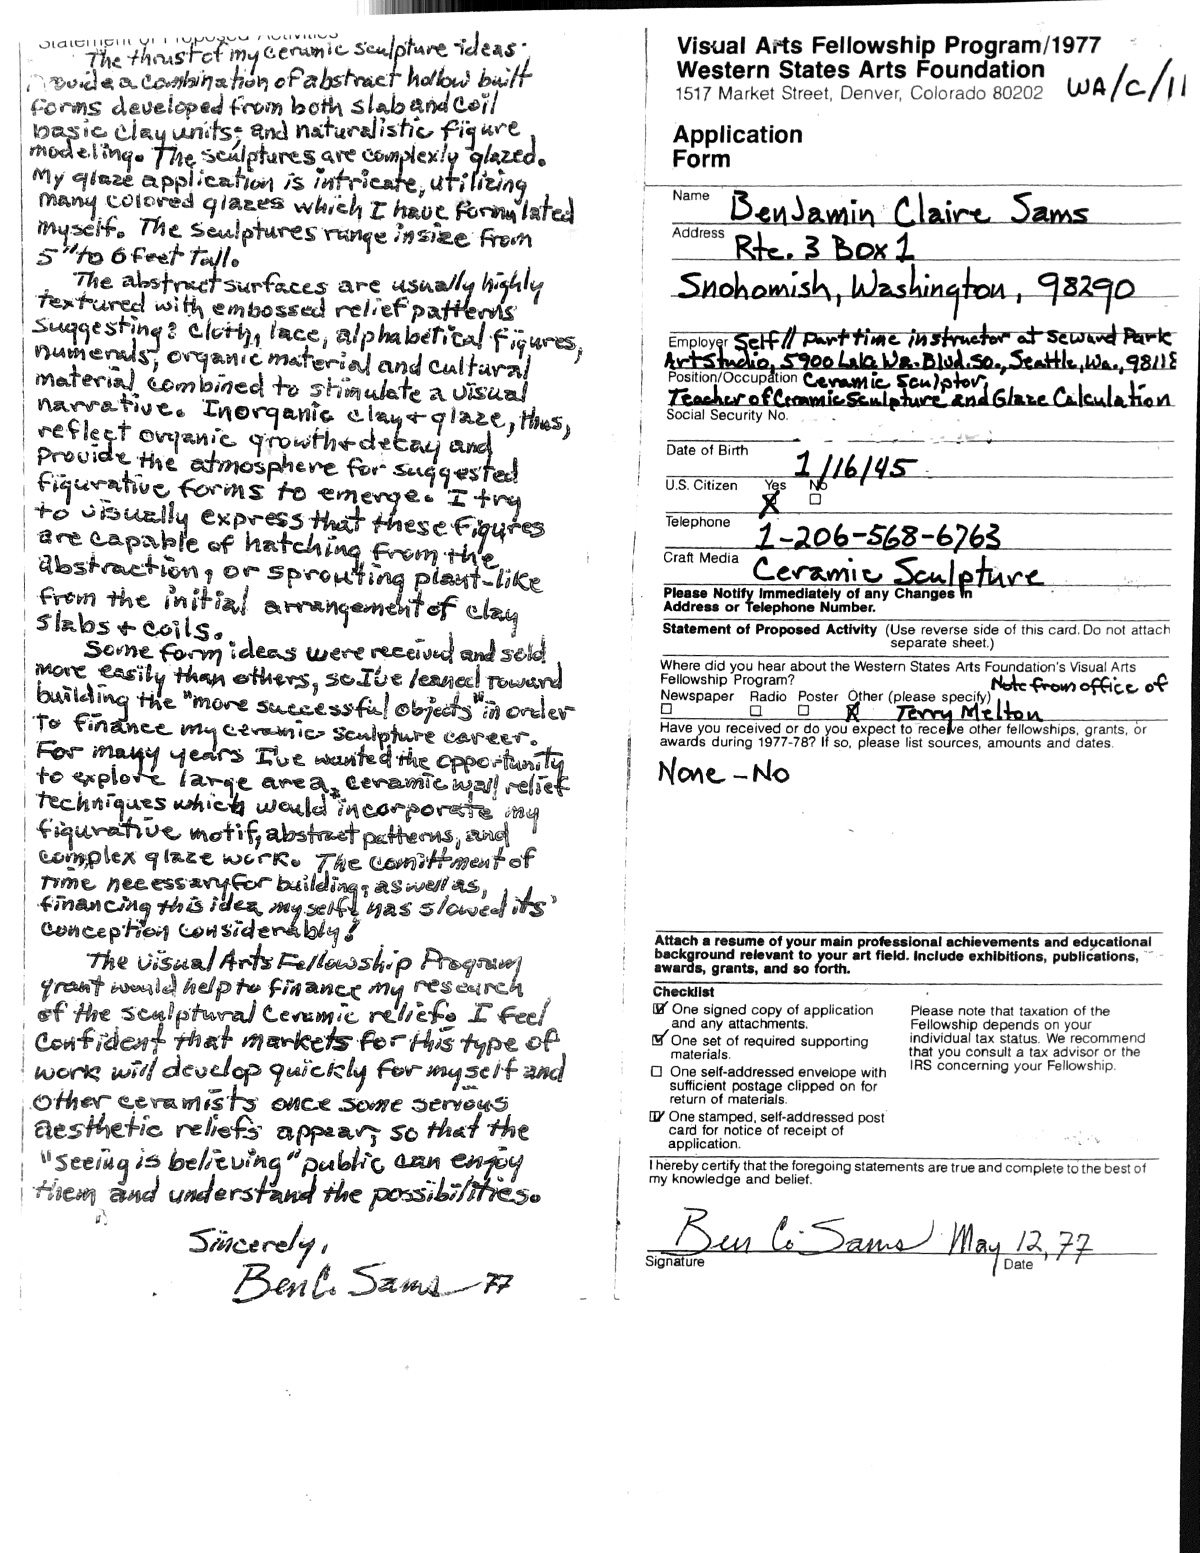 Statement of Proposed Activities
The thrust of my ceramic sculpture ideas:
Provide a combination of abstract hollow built
forms developed from both slab and coil
basic clay units; and naturalistic figure
modeling. The sculptures are complexly glazed.
My glaze application is intricate, utilizing
many colored glazes which I have formulated
myself. The sculptures range in size from
5" to 6 feet tall.
The abstract surfaces are usually highly
textured with embossed relief patterns
suggesting: cloth, lace, alphabetical figures,
numerals, organic material and cultural
material combined to stimulate a visual
narrative. Inorganic clay + glaze, thus,
reflect organic growth + decay and
provide the atmosphere for suggested
figurative forms to emerge. I try
to visually express that these figures
are capable of hatching from the
abstraction, or sprouting plant-like
from the initial arrangement of clay
slabs + coils.
Some form ideas were received and sold
more easily than others, so I've leaned toward
building the "more successful objects" in order
to finance my ceramic sculpture career.
For many years I've wanted the opportunity
to explore large area, ceramic wall relief
techniques which would incorporate my
figurative motif, abstract patterns, and
complex glaze work. The comittment of
time necessary for building, as well as,
financing this idea myself, has slowed its'
conception considerably!
The Visual Arts Fellowship Program
grant would help to finance my research
of the sculptural ceramic relief. I feel
confident that markets for this type of
work will develop quickly for myself and
other ceramists once some serious
aesthetic reliefs appear, so that the
"seeing is believing" public can enjoy
them and understand the possibilities.
Sincerely,
Ben C. Sams 77
Visual Arts Fellowship Program/1977
Western States Arts Foundation
1517 Market Street, Denver, Colorado 80202 WA/C/11
Application
Form
Name Benjamin Claire Sams
Address Rte. 3 Box 1
Snohomish, Washington, 98290
Employer Self // Part time instructor at Seward Park
Art Studio, 5900 Lake Wa. Blvd. So., Seattle, Wa., 98118
Position/Occupation Ceramic Sculptor,
Teacher of Ceramic Sculpture and Glaze Calculation
Social Security No.
Date of Birth 1/16/45
U.S. Citizen Yes No
Telephone 1-206-568-6763
Craft Media Ceramic Sculpture
Please Notify Immediately of any Changes in
Address or Telephone Number.
Statement of Proposed Activity (Use reverse side of this card. Do not attach
separate sheet.)
Where did you hear about the Western States Arts Foundation's Visual Arts
Fellowship Program? Note from office of
Newspaper Radio Poster Other (please specify)
Terry Melton
Have you received or do you expect to receive other fellowships, grants, or
awards during 1977-78? If so, please list sources, amounts and dates.
None - No
Attach a resume of your main professional achievements and educational
background relevant to your art field. Include exhibitions, publications,
awards, grants, and so forth.
Checklist
One signed copy of application
and any attachments.
One set of required supporting
materials.
One self-addressed envelope with
sufficient postage clipped on for
return of materials.
One stamped, self-addressed post
card for notice of receipt of
application.
Please note that taxation of the
Fellowship depends on your
individual tax status. We recommend
that you consult a tax advisor or the
IRS concerning your Fellowship.
I hereby certify that the foregoing statements are true and complete to the best of
my knowledge and belief.
Ben C. Sams May 12, 77
Signature Date